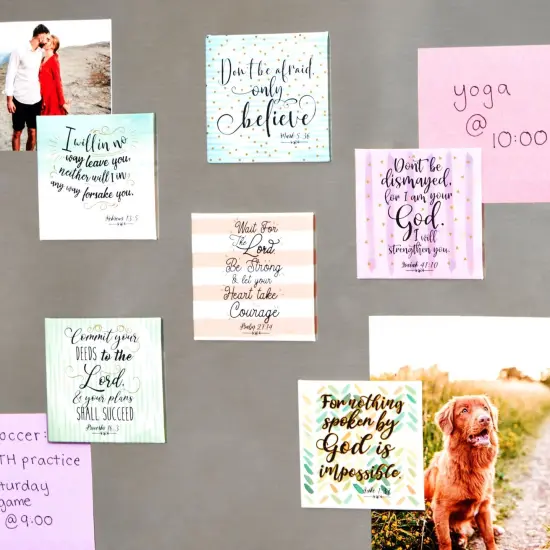 Don't be afraid,
only
believe
Mark 5:36
yoga
@
10:00
I will in no
way leave you,
neither will I in
any way forsake you.
Hebrews 13:5
Don't be
dismayed,
for I am your
God.
I will
strengthen you.
Isaiah 41:10
Wait For
The Lord
Be Strong
& let your
Heart take
Courage
Psalm 27:14
Commit your
DEEDS to the
Lord,
& your plans
SHALL SUCCEED
Proverbs 16:3
For nothing
spoken by
God is
impossible.
Luke 1:36
occer:
TH practice
turday
game
@9:00